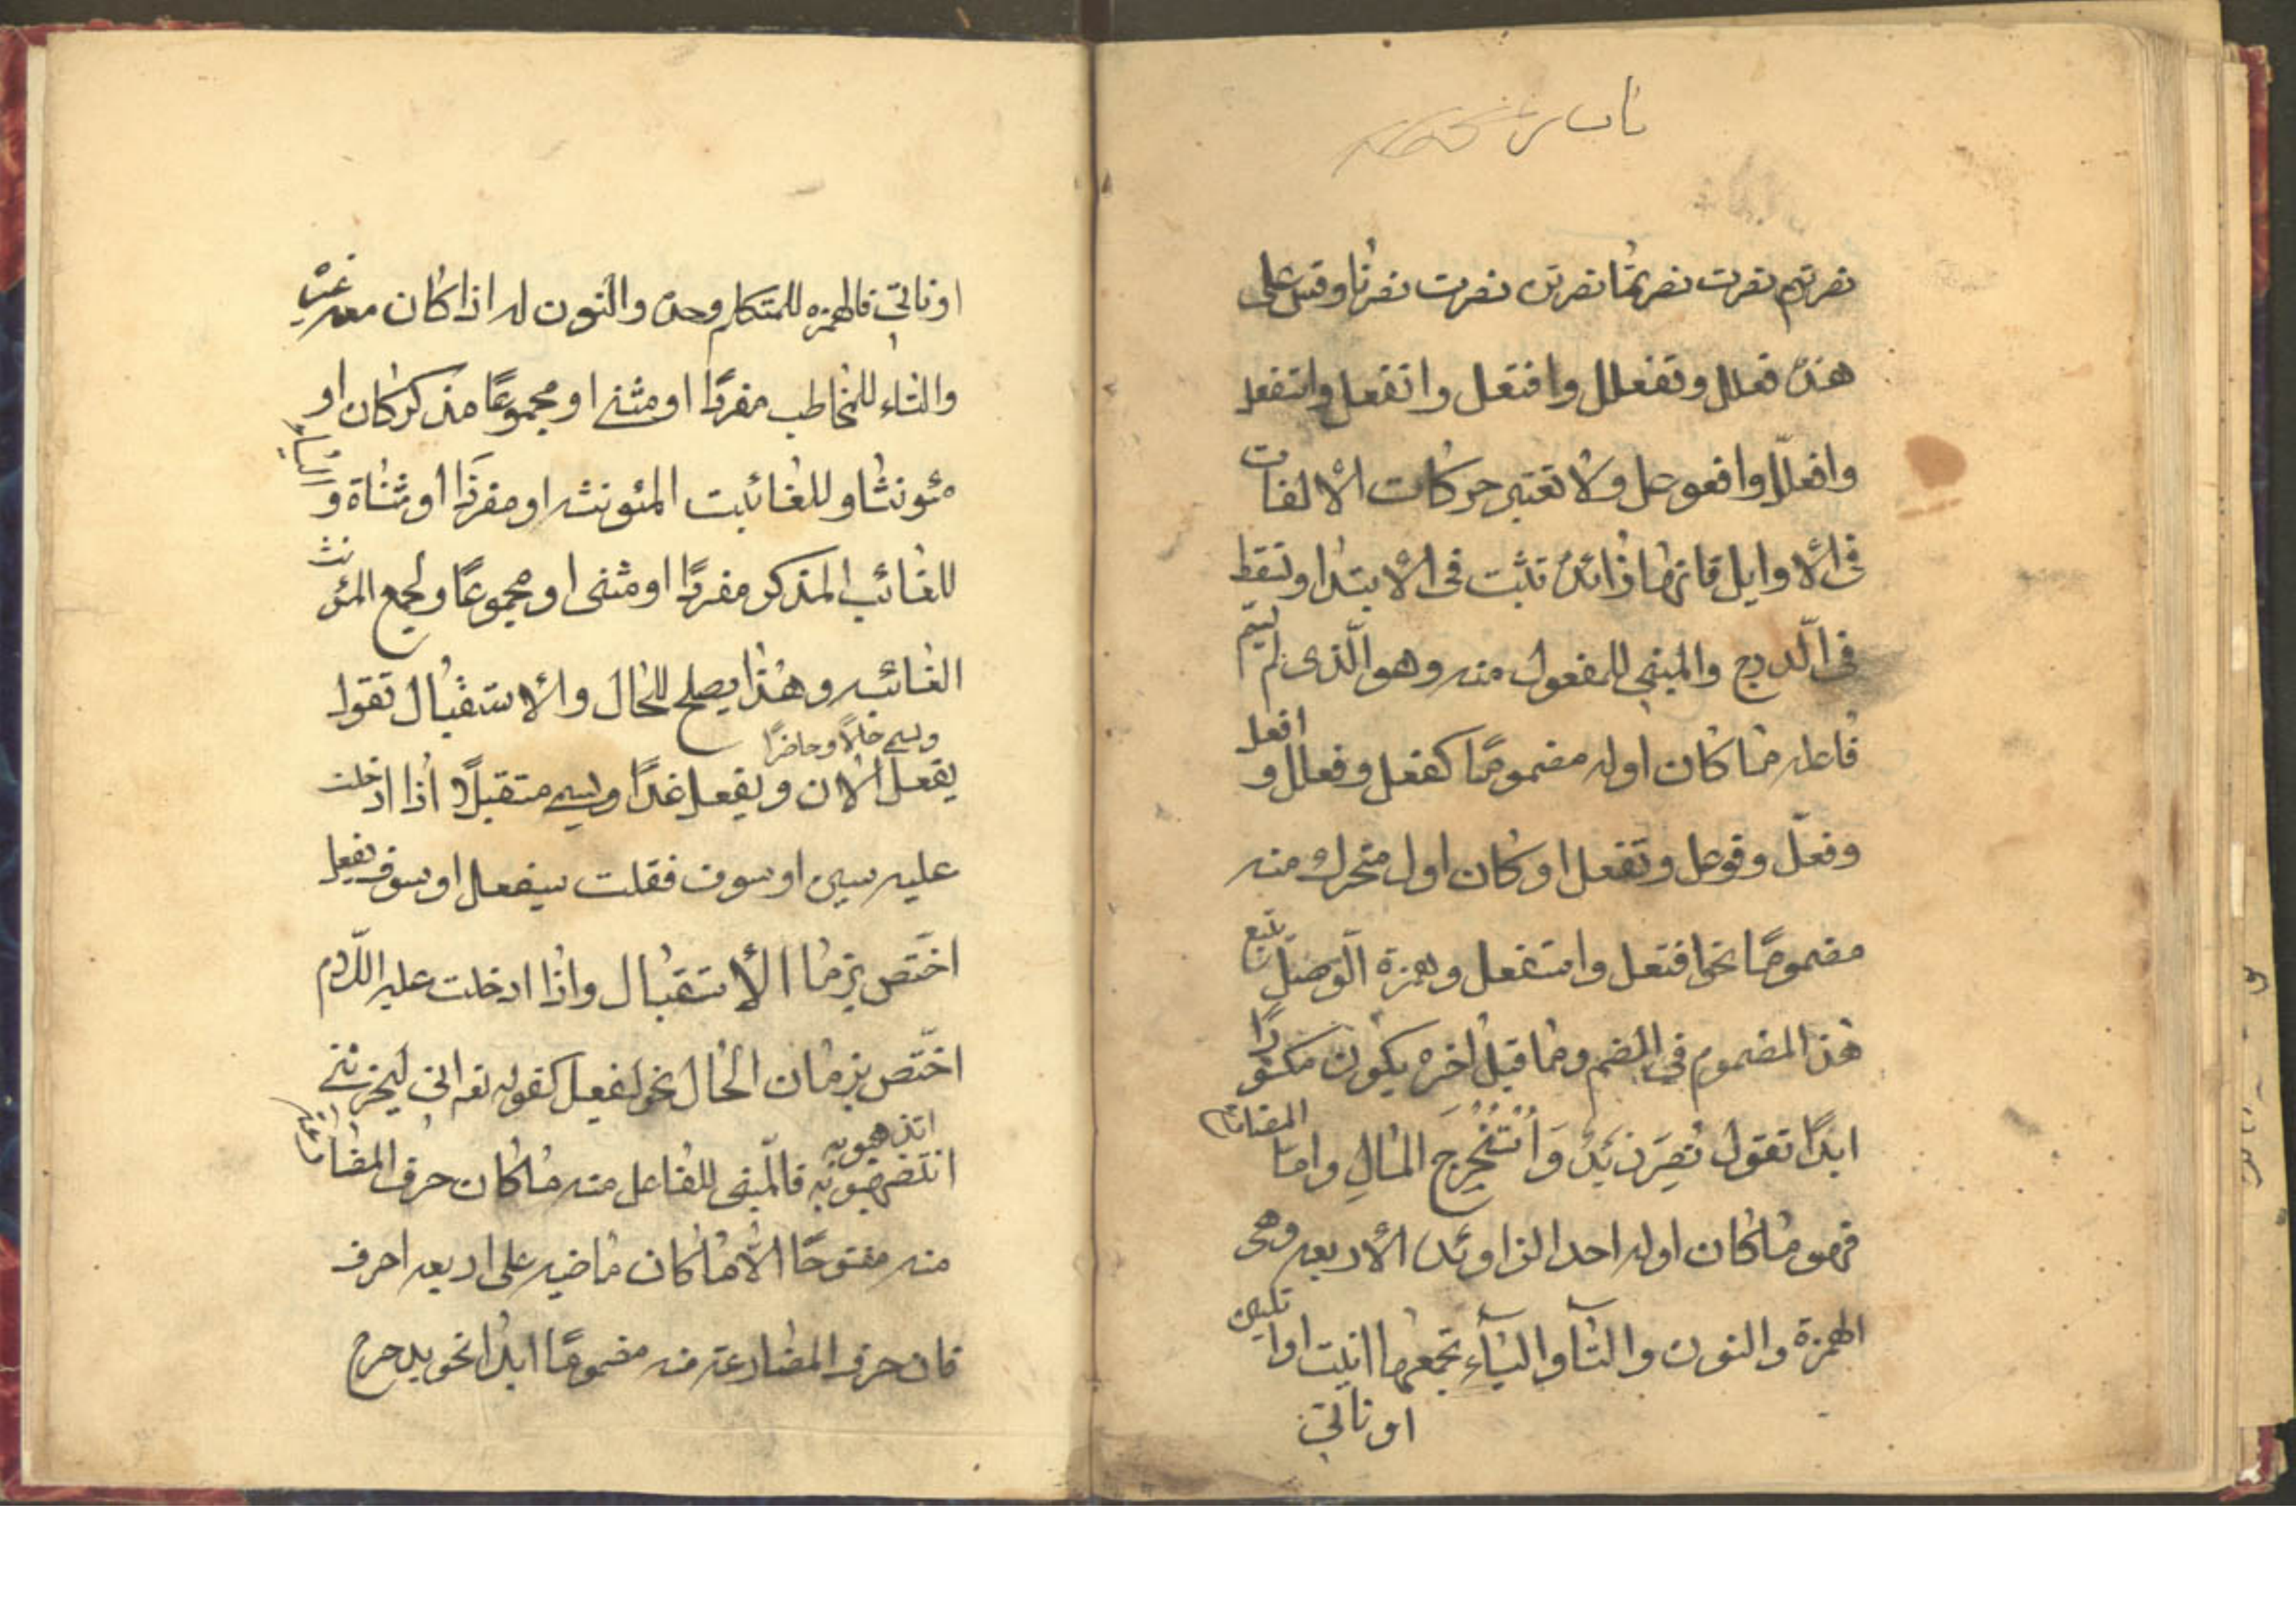 نصرتم نصرت نصرتما نصرتن نصرت نصرنا وقس على
هذه فعلل وتفعلل وافتعل وانفعل واستفعل
وافعلل وافعوعل ولا تعتبر حركات الألفات
فى الأوايل فانها زائدة تثبت فى الأبتدا وتسقط
فى الدرج والمبنى للمفعول منه وهو الذى لم يسم
فاعله ما كان اوله مضموما كفعل وفعلل و افعل
وفعّل وفوعل وتفعل او كان اول متحرك منه
مضمومًا نحو افتعل واستفعل وهمزة الوصل تتبع
هذا المضموم فى الضم وما قبل اخره يكون مكسورًا
ابدًا تقول نُصِرَ زيدٌ وَاُسْتُخْرِجَ المالِ واما المضارع
فهو ما كان اوله احد الزاوئد الأربعه وهى
الهمزة والنون والتآ واليآء تجمعها انيت او اتين
او ناتى
او ناتى فالهمزه للمتكلم وحده والنون له اذا كان معه غيره
والتاء للمخاطب مفردًا او مثنى او مجموعًا مذكر كان او
مئونثا وللغائبت المئونثه او مفردًا او مثناة و الياء
للغائب المذكر مفردًا او مثنى او مجموعًا ولجمع المئونث
الغائبه وهذا يصلح للحال والأستقبال تقوا
ويسمى حالًا وحاضرًا
يفعل الان ويفعل غدًا ويسمى مستقبلًا اذا ادخلت
عليه سين او سوف فقلت سيفعل او سوف يفعل
اختّص بزما الأستقبال واذا ادخلت عليه اللام
اختّص بزمان الحال نحو ليفعل كقوله تعه انى ليحزننى
ان تذهبو به فالمبنى للفاعل منه ما كان حرف المضا
منه مفتوحًا الّا ما كان ماضيه على اربعه احرف
فان حرف المضارعة منه مضمومًا ابدا نحو يدحرج